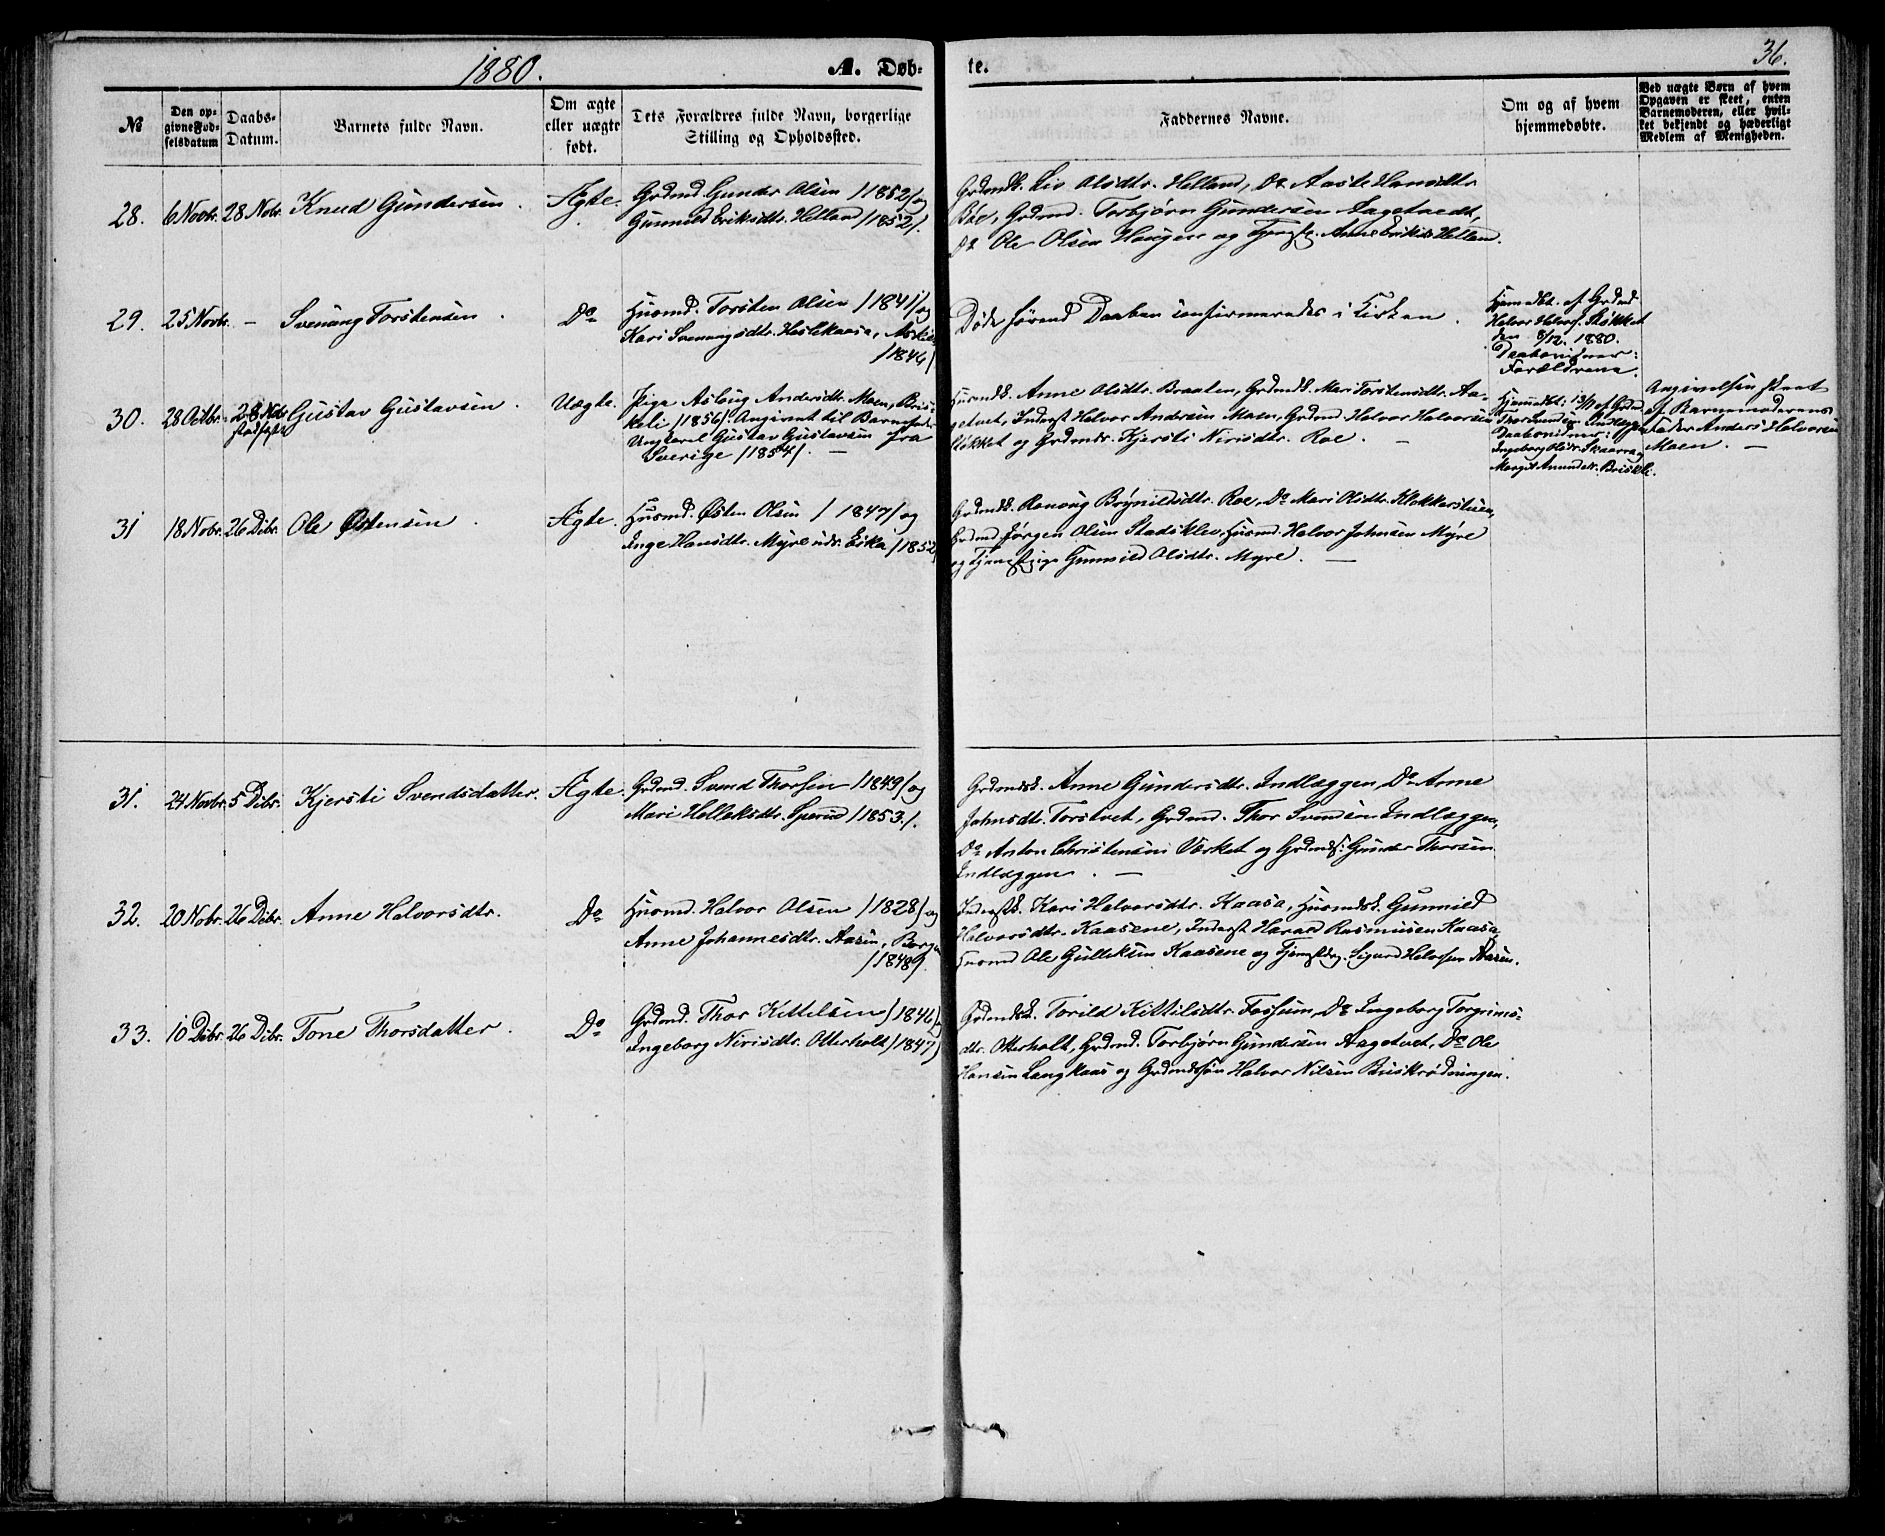 1880.
A. Døb-
te.
36.
№
Den op-
givne Fød-
selsdatum
Daabs-
Datum.
Barnets fulde Navn.
Om ægte
eller uægte
født.
Dets Forældres fulde Navn, borgerlige
Stilling og Opholdssted.
Faddernes Navne.
Om og af hvem
hjemmedøbte.
Ved uægte Børn af hvem
Opgaven er skeet, enten
Barnemoderen, eller hvil-
ket bekjendt og hæderligt
Medlem af Menigheden.
28. 6 Novbr. 28 Nobr. Knud Gundersen. Ægte.
Grdmd. Gunder Olsen /1852/ og
Gunnild Eriksdtr. Helland /1852/.
Grdmdk. Liv Olsdtr. Helland, Do Aaste Hansdtr.
Bøe, Grdmd. Torbjørn Gundersen Aagetvedt,
Do Ole Olsen Haugen og Tjenstp. Anne Eriksd. Helland.
29. 25 Novbr. – Svenung Torstensen. Do
Husmd. Torsten Olsen /1841/ og
Kari Svenungsdtr. Haslekaasa,
/1846/
Døde førend Daaben confirmeredes i Kirken.
Hjemmedbt. af Grdmd.
Halvor Halvors. Støkket
den 8/12. 1880.
Daabsvidner:
Forældrene.
30. 28 Octbr. 28 Nobr. Gustav Gustavsen. Uægte.
stadfæstet
Pige Aslaug Andersdtr. Moen, Bris-
keli /1856/. Angivent til Barnefader
Ungkarl Gustav Gustavsen fra
Sverige /1854/. —
Husmdk. Anne Olsdtr. Braaten, Grdmdk. Mari Torstensdtr. Aa-
getvet, Inderst Halvor Andersen Moen, Grdmd. Halvor Halvorsen
Støkket og Grdmdk. Kjersti Nirisdtr. Roe. —
Hjemmedbt. 13/11 af Grdmd.
Thor Svendsen Indlæggen
Daabsvidner:
Ingeborg Olsdtr. Skaarra og
Margit Amundsdtr. Briskeli.
Angivelsen skeet
af Barnemoderens
Fader Anders Halvorsen
Moen. —
31 18 Nobr. 26 Dcbr. Ole Østensen. Ægte.
Husmd. Østen Olsen /1847/ og
Inge Hansdtr. Myre udr. Eika /1852/
Grdmdk. Ranaug Brynildsdtr. Roe, Do Mari Olsdtr. Klokkersteien,
Grdmd Jørgen Olsen Stadsklev, Husmd. Halvor Johnsen Myre
og Tjenestpige Gunnild Olsdtr. Myre. —
31. 24 Novbr. 5 Dcbr. Kjersti Svendsdatter. Ægte.
Grdmd. Svend Thorsen /1849/ og
Mari Helleksdtr. Sperud /1853/.
Grdmdk. Anne Gundersdtr. Indlæggen, Do Anne
Johnsdtr. Torstvet, Grdmd. Thor Svendsen Indlæggen,
Do Anton Christensen Værket og Grdmds. Gunder Thorsen
Indlæggen. —
32. 20 Nobr. 26 Dcbr. Anne Halvorsdtr. Do
Husmd. Halvor Olsen /1828/ og
Anne Johannesdtr. Aasen, Borgen
/1848/.
Inderstk. Kari Halvorsdtr. Kaasa, Husmdk. Gunnild
Halvorsdtr. Kaasene, Inderst Harald Rasmusen Kaasa,
Husmd Ole Gulleksen Kaasene og Tjenstdrg. Sigurd Halvorsen Aasen.
33. 10 Dcbr. 26 Dcbr. Tone Thorsdatter. Do
Grdmd. Thor Kittelsen /1846/ og
Ingeborg Nirisdtr. Otterholt /1847/
Grdmdk. Torild Kittilsdtr. Fossum, Do Ingeborg Torgrims-
dtr. Otterholt, Grdmd. Torbjørn Gundersen Aagetvet, Do Ole
Hansen Langkaas og Grdmdsøn Halvor Nilsen Buskrødningen.